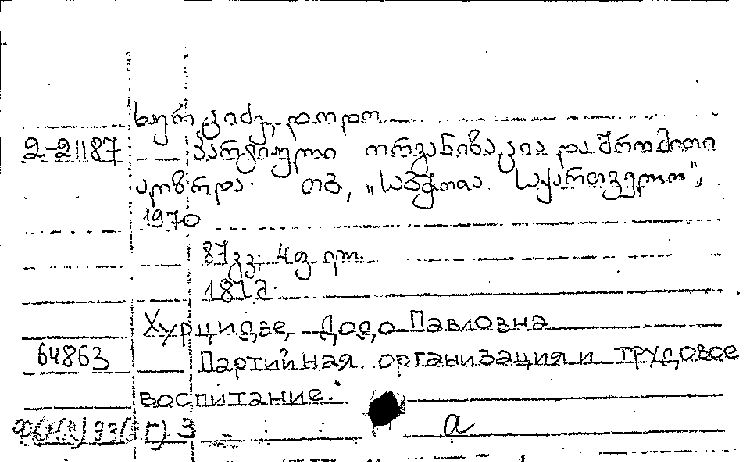 ხურციძე, დოდო
2-21187 პარტიული ორგანიზაცია და შრომითი
აღზრდა. თბ., „საბჭოთა საქართველო",
1970
87 გვ. 4 ფ ილ.
18 კ
Хурцидзе, Додо Павловна
64863 Партийная организация и трудовое
воспитание.
3 a